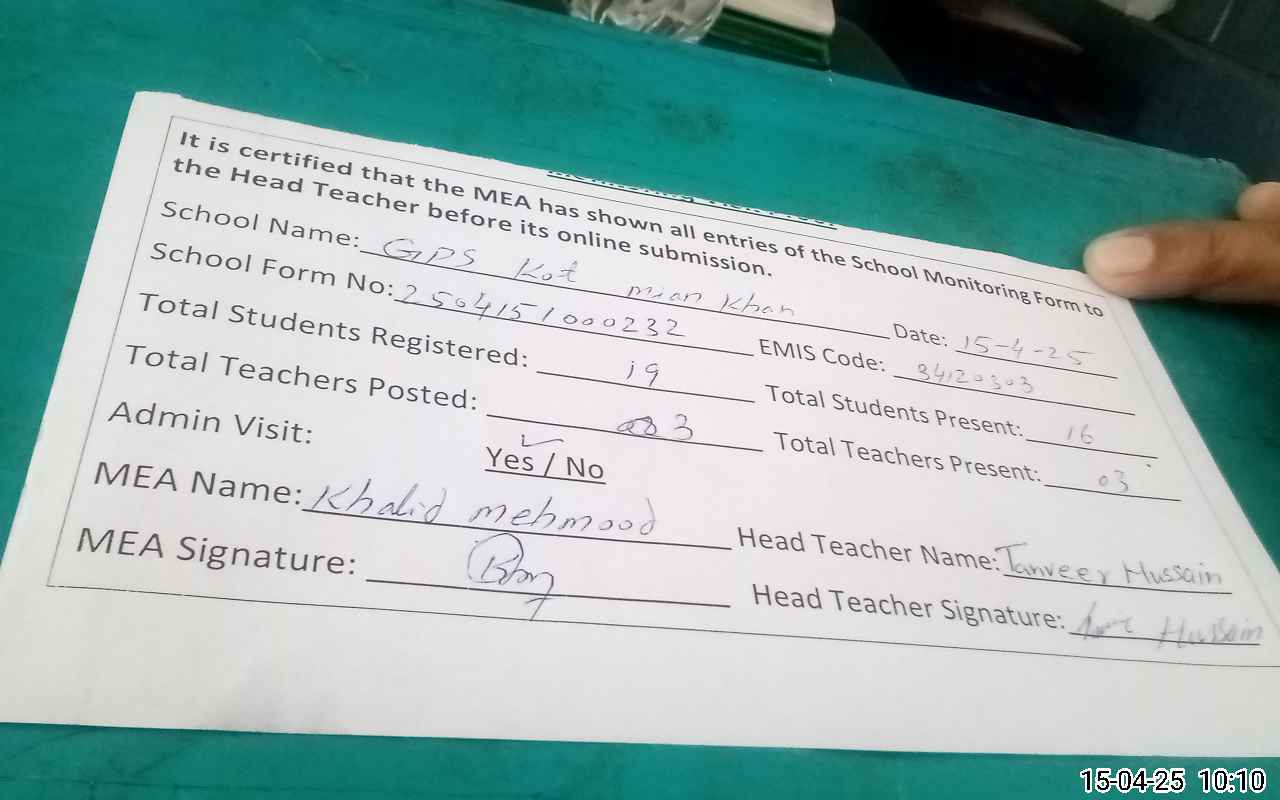 It is certified that the MEA has shown all entries of the School Monitoring Form to
the Head Teacher before its online submission.
School Name: GPS Kot mian Khan Date: 15-4-25
School Form No: 2504151000232 EMIS Code: 34120303
Total Students Registered: 19 Total Students Present: 16
Total Teachers Posted: 03 Total Teachers Present: 03
Admin Visit: Yes / No
MEA Name: Khalid mehmood Head Teacher Name: Tanveer Hussain
MEA Signature: Head Teacher Signature: Hussain
15-04-25 10:10